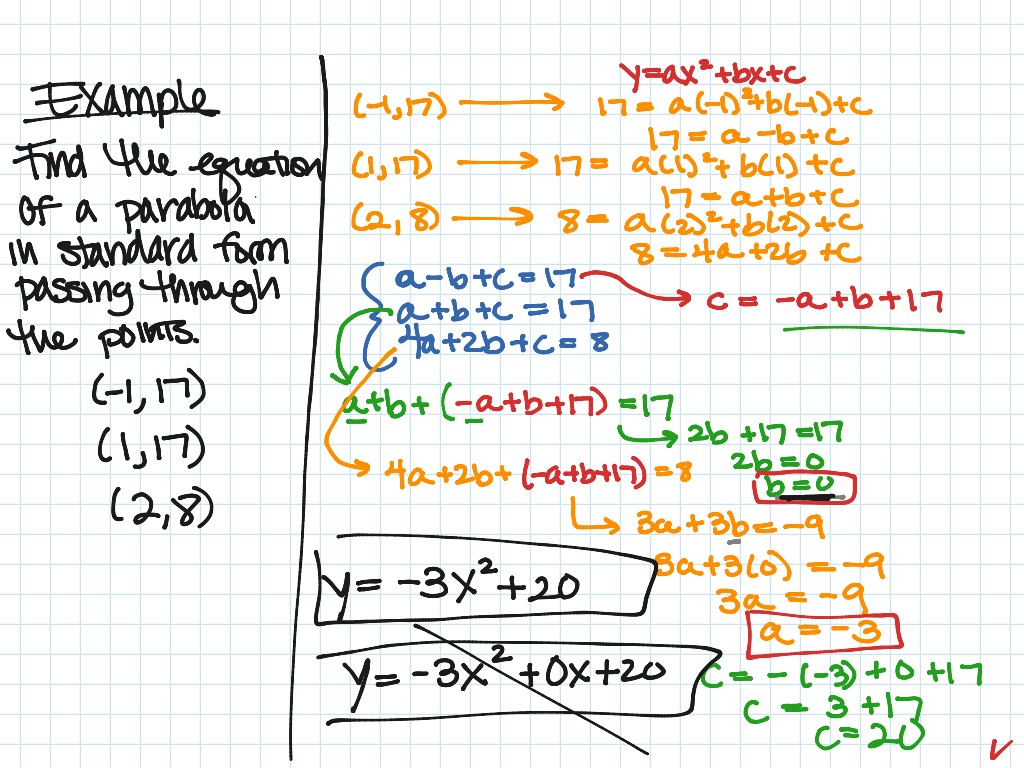 Example
Find the equation
of a parabola
in standard form
passing through
the points.
(-1,17)
(1,17)
(2,8)
y=ax²+bx+c
(-1,17) → 17 = a(-1)²+b(-1)+c
17 = a-b+c
(1,17) → 17 = a(1)²+b(1)+c
17 = a+b+c
(2,8) → 8 = a(2)²+b(2)+c
8 = 4a+2b+c
a-b+c=17 → c = -a+b+17
a+b+c=17
4a+2b+c=8
a+b+(-a+b+17)=17
→ 2b+17=17
2b=0
b=0
4a+2b+(-a+b+17)=8
→ 3a+3b=-9
3a+3(0)=-9
3a=-9
a=-3
c = -(-3)+0+17
c = 3+17
c=20
y=-3x²+20
y=-3x²+0x+20